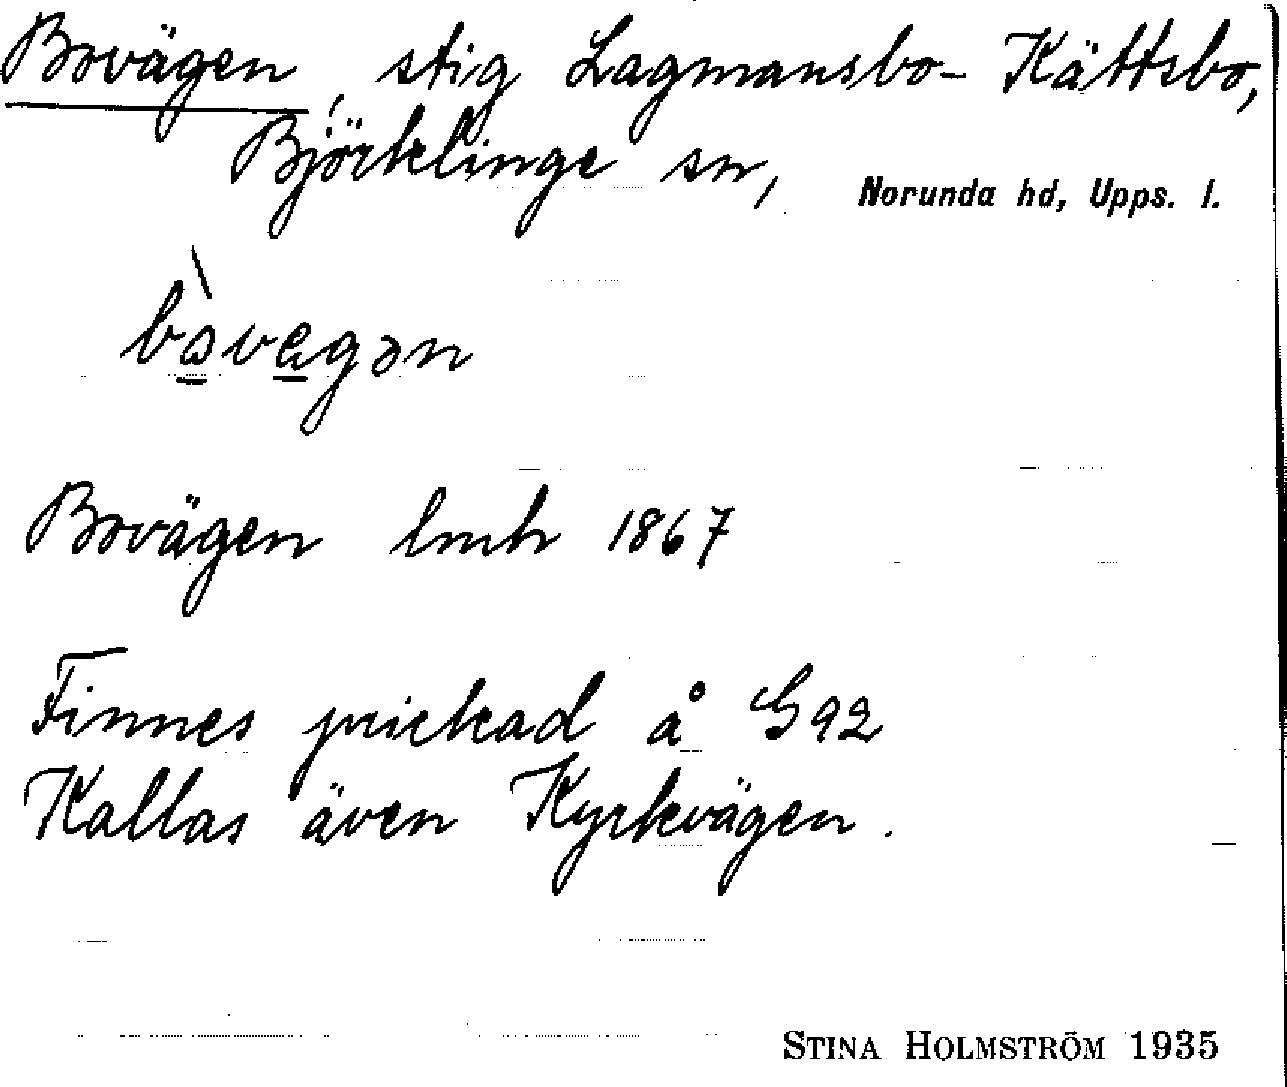 Bovägen, stig Lagmansbo- Kättsbo,
Björklinge sn, Norunda hd, Upps. l.
bòvägən
Bovägen lmh 1867
Finnes prickad å G92
Kallas även Kyrkvägen.
STINA HOLMSTRÖM 1935